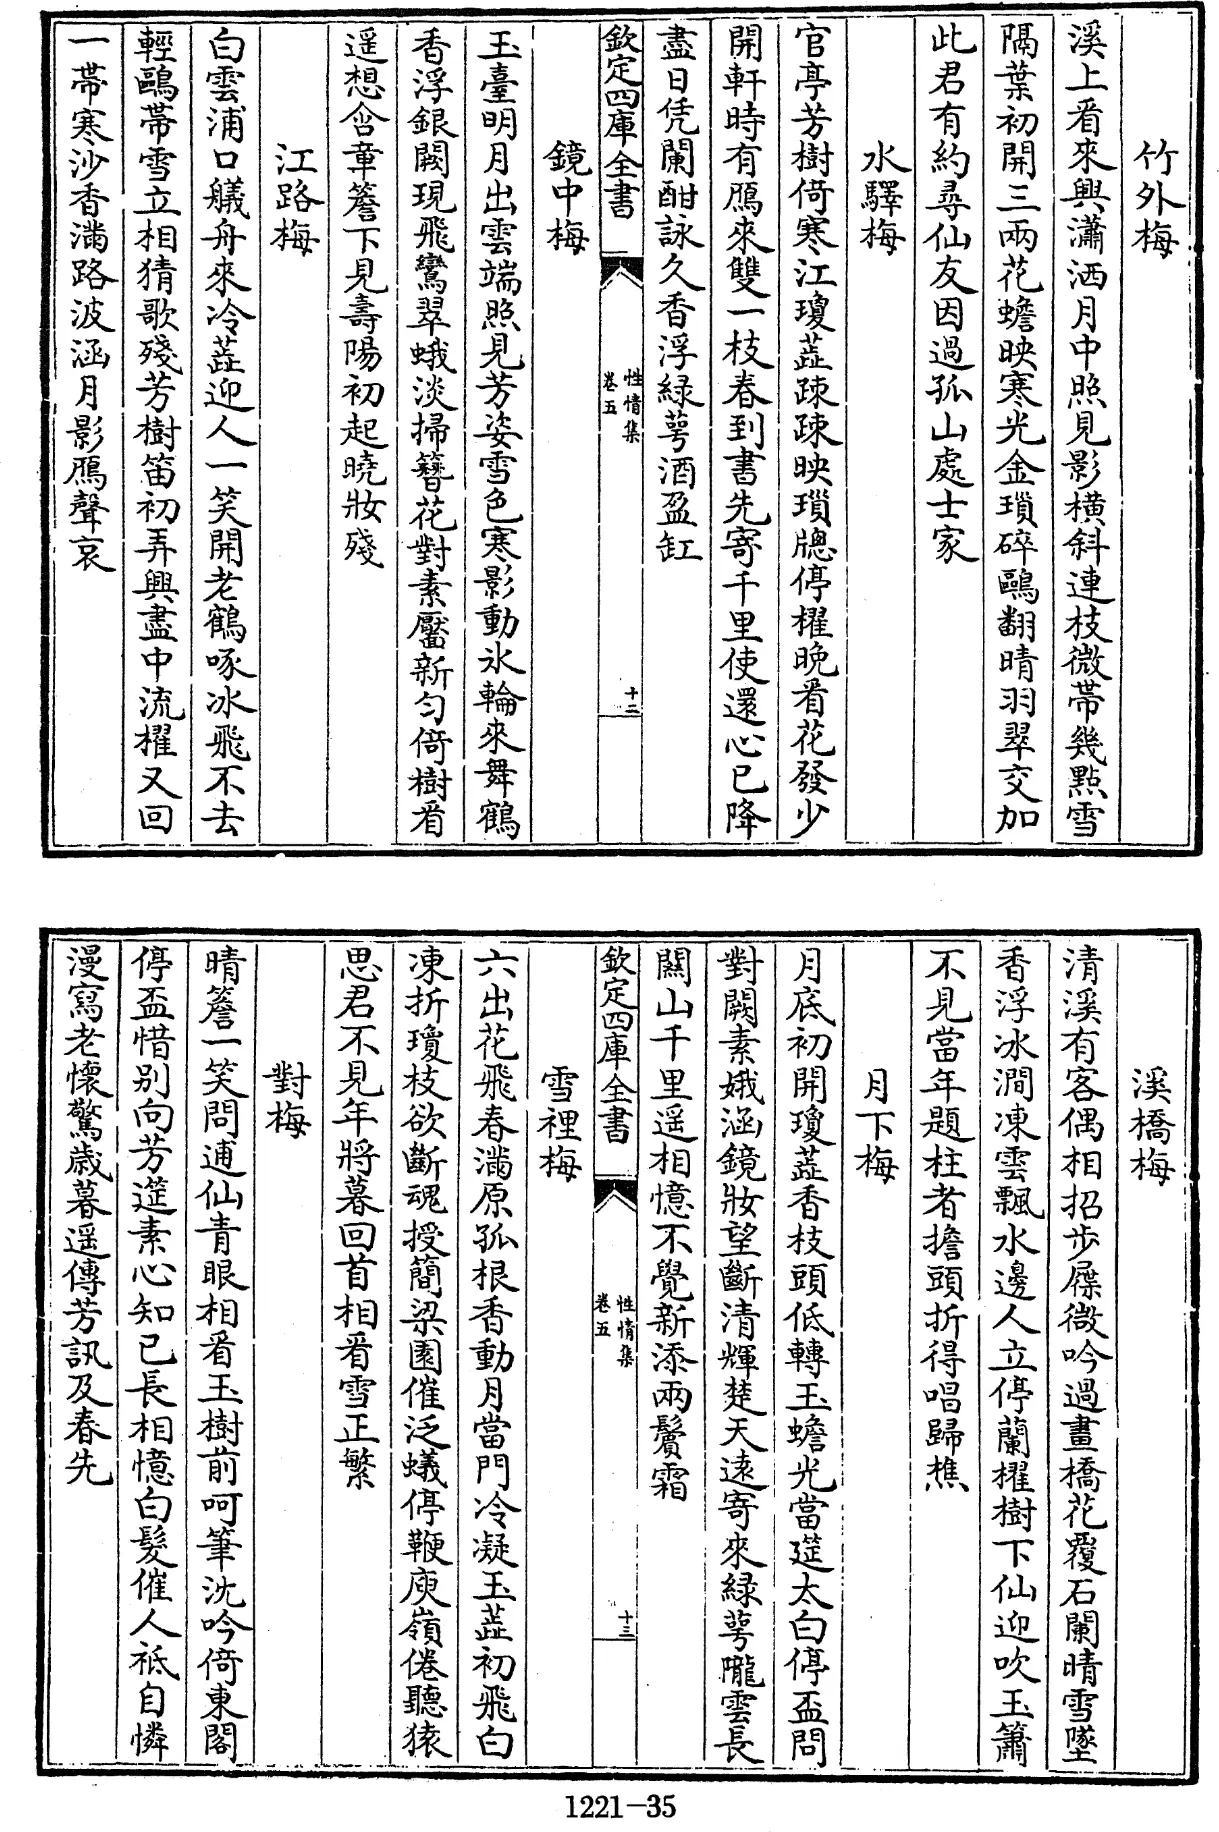 竹外梅
溪上看來興瀟洒月中照見影橫斜連枝微帶幾點雪
隔葉初開三兩花蟾映寒光金瑣碎鷗翻晴羽翠交加
此君有約尋仙友因過孤山處士家
水驛梅
官亭芳樹倚寒江瓊蕋疎疎映瑣牕停櫂晩看花發少
開軒時有鴈來雙一枝春到書先寄千里使還心已降
盡日凭闌酣詠久香浮緑萼酒盈缸
欽定四庫全書
性情集
卷五
十二
鏡中梅
玉臺明月出雲端照見芳姿雪色寒影動氷輪來舞鶴
香浮銀闕現飛鸞翠蛾淡掃簪花對素靨新匀倚樹看
遥想含章簷下見壽陽初起曉妝殘
江路梅
白雲浦口艤舟來冷蕋迎人一笑開老鶴啄冰飛不去
輕鷗帶雪立相猜歌殘芳樹笛初弄興盡中流櫂又回
一帶寒沙香滿路波涵月影鴈聲哀
溪橋梅
清溪有客偶相招步屧微吟過畫橋花覆石闌晴雪墜
香浮冰澗凍雲飄水邊人立停蘭櫂樹下仙迎吹玉簫
不見當年題柱者擔頭折得唱歸樵
月下梅
月底初開瓊蕋香枝頭低轉玉蟾光當筵太白停盃問
對闕素娥涵鏡妝望斷清輝楚天遠寄來緑萼隴雲長
關山千里遥相憶不覺新添兩鬢霜
欽定四庫全書
性情集
卷五
十三
雪裡梅
六出花飛春滿原孤根香動月當門冷凝玉蕋初飛白
凍折瓊枝欲斷魂授簡梁園催泛蟻停鞭庾嶺倦聽猿
思君不見年將暮回首相看雪正繁
對梅
晴簷一笑問逋仙青眼相看玉樹前呵筆沈吟倚東閣
停盃惜别向芳筵素心知已長相憶白髮催人祗自憐
漫寫老懷驚歳暮遥傳芳訊及春先
1221-35